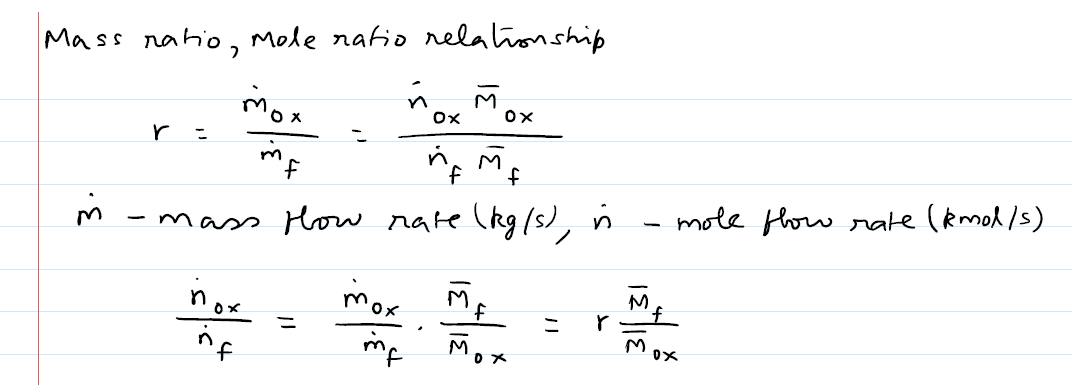 Mass ratio, Mole ratio relationship
r = ṁ_ox / ṁ_f = ṅ_ox M̄_ox / ṅ_f M̄_f
ṁ - mass flow rate (kg/s), ṅ - mole flow rate (kmol/s)
ṅ_ox / ṅ_f = ṁ_ox / ṁ_f . M̄_f / M̄_ox = r M̄_f / M̄_ox